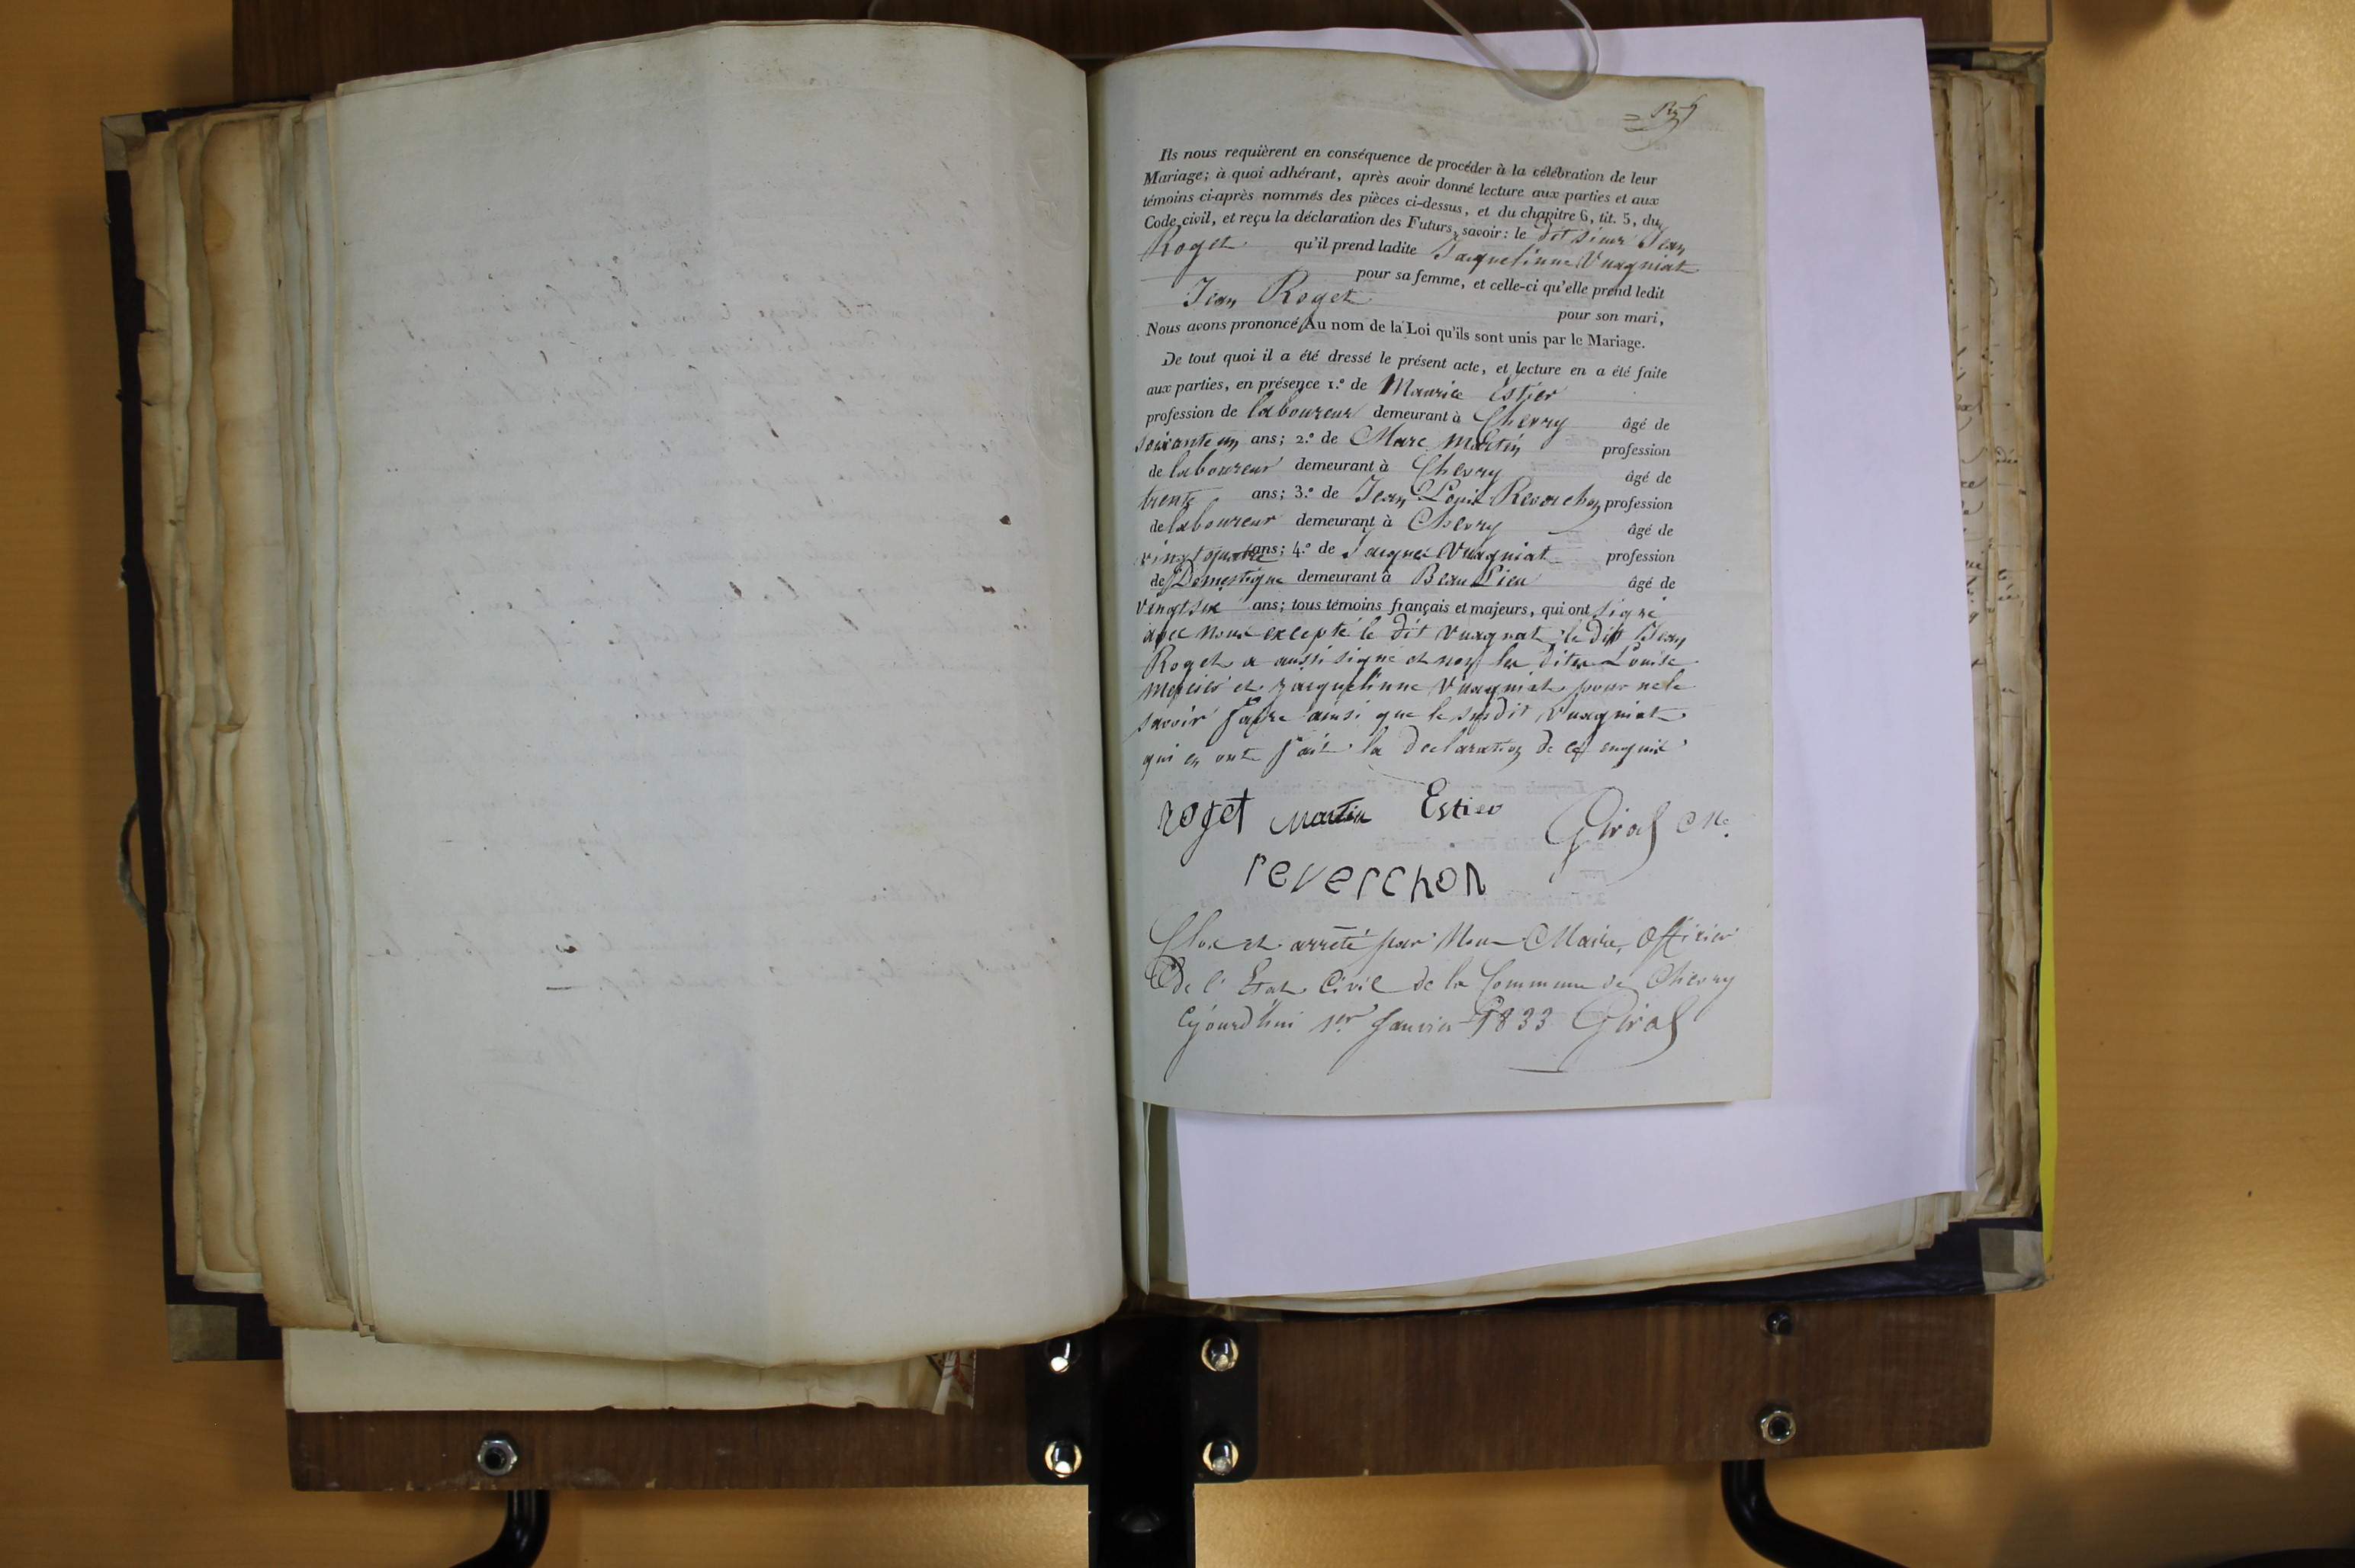 Ils nous requièrent en conséquence de procéder à la célébration de leur
Mariage; à quoi adhérant, après avoir donné lecture aux parties et aux
témoins ci-après nommés des pièces ci-dessus, et du chapitre 6, tit. 5, du
Code civil, et reçu la déclaration des Futurs, savoir: le dit sieur Jean
Roget qu'il prend ladite Jacquelinne Vuagniat
pour sa femme, et celle-ci qu'elle prend ledit
Jean Roget
pour son mari,
Nous avons prononcé, Au nom de la Loi qu'ils sont unis par le Mariage.
De tout quoi il a été dressé le présent acte, et lecture en a été faite
aux parties, en présence 1.º de Maurice Estier
profession de laboureur demeurant à Chevry âgé de
soixante un ans; 2.º de Marc Martin profession
de laboureur demeurant à Chevry âgé de
trente ans; 3.º de Jean Louis Reverchon profession
de laboureur demeurant à Chevry âgé de
vingt quatre ans; 4.º de Jacques Vuagniat profession
de Domestique demeurant à Beau Lieu âgé de
vingt six ans; tous témoins français et majeurs, qui ont signé
avec nous excepté le dit Vuagnat, le dit Jean
Roget a aussi signé et non les dites Louise
et Jacquelinne Vuagniat pour ne le
savoir faire ainsi que le susdit Vuagniat
qui en ont fait la declaration de ce enquis
roget Martin Estier Giral Me.
reverchon
Clos et arrêté par Nous Maire, Officier
De l'Etat Civil de la Commune de Chevry
Cejourd'hui 1er Janvier 1833 Giral